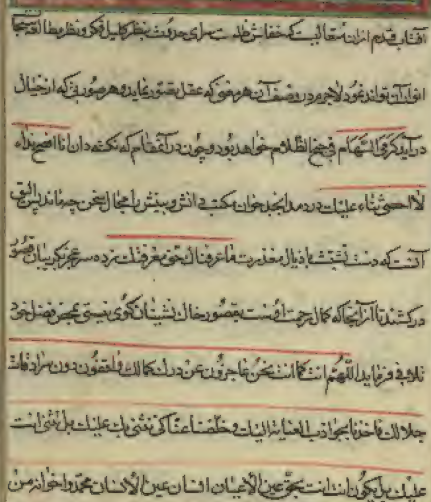 آفتاب قدم ازان متعالیست که خفاش ظلمت سرای حدوث بنظر کلیل فکر و نظر مطالعه سبحات
انوار آن تواند نمود لاجرم در وصف آن هر معنی که عقل تصور نماید و هر صورتی که از خیال
در آید کرمی السهام فی جنح الظلام خواهد بود و چون در آن مقام که نکته دان انا افصح نداء
لا احصی ثناء علیك در دهد ابجد خوان مکتب دانش و بینش را مجال سخن چه ماند پس الیق
آنست که دست تشبث باذیال معذرت ما عرفناك حق معرفتك زده سر عجز بگریبان قصور
در کشد تا از آنجا که کمال رحمت اوست بقصور خاك نشینان کوی نیستی بمحض فضل خود
تلافی فرماید اللهم انت کما انت نحن عاجزون عن درك کمالك واقفون دون سرادقات
جلالك فاخذنا بجواذب العنایة الیك و خلصنا عنا کی نثنی بك علیك بل تثنی انت
علیك بل یکون انت انت بحق عین الأعیان انسان عین الأنسان محمد و اخوانه من